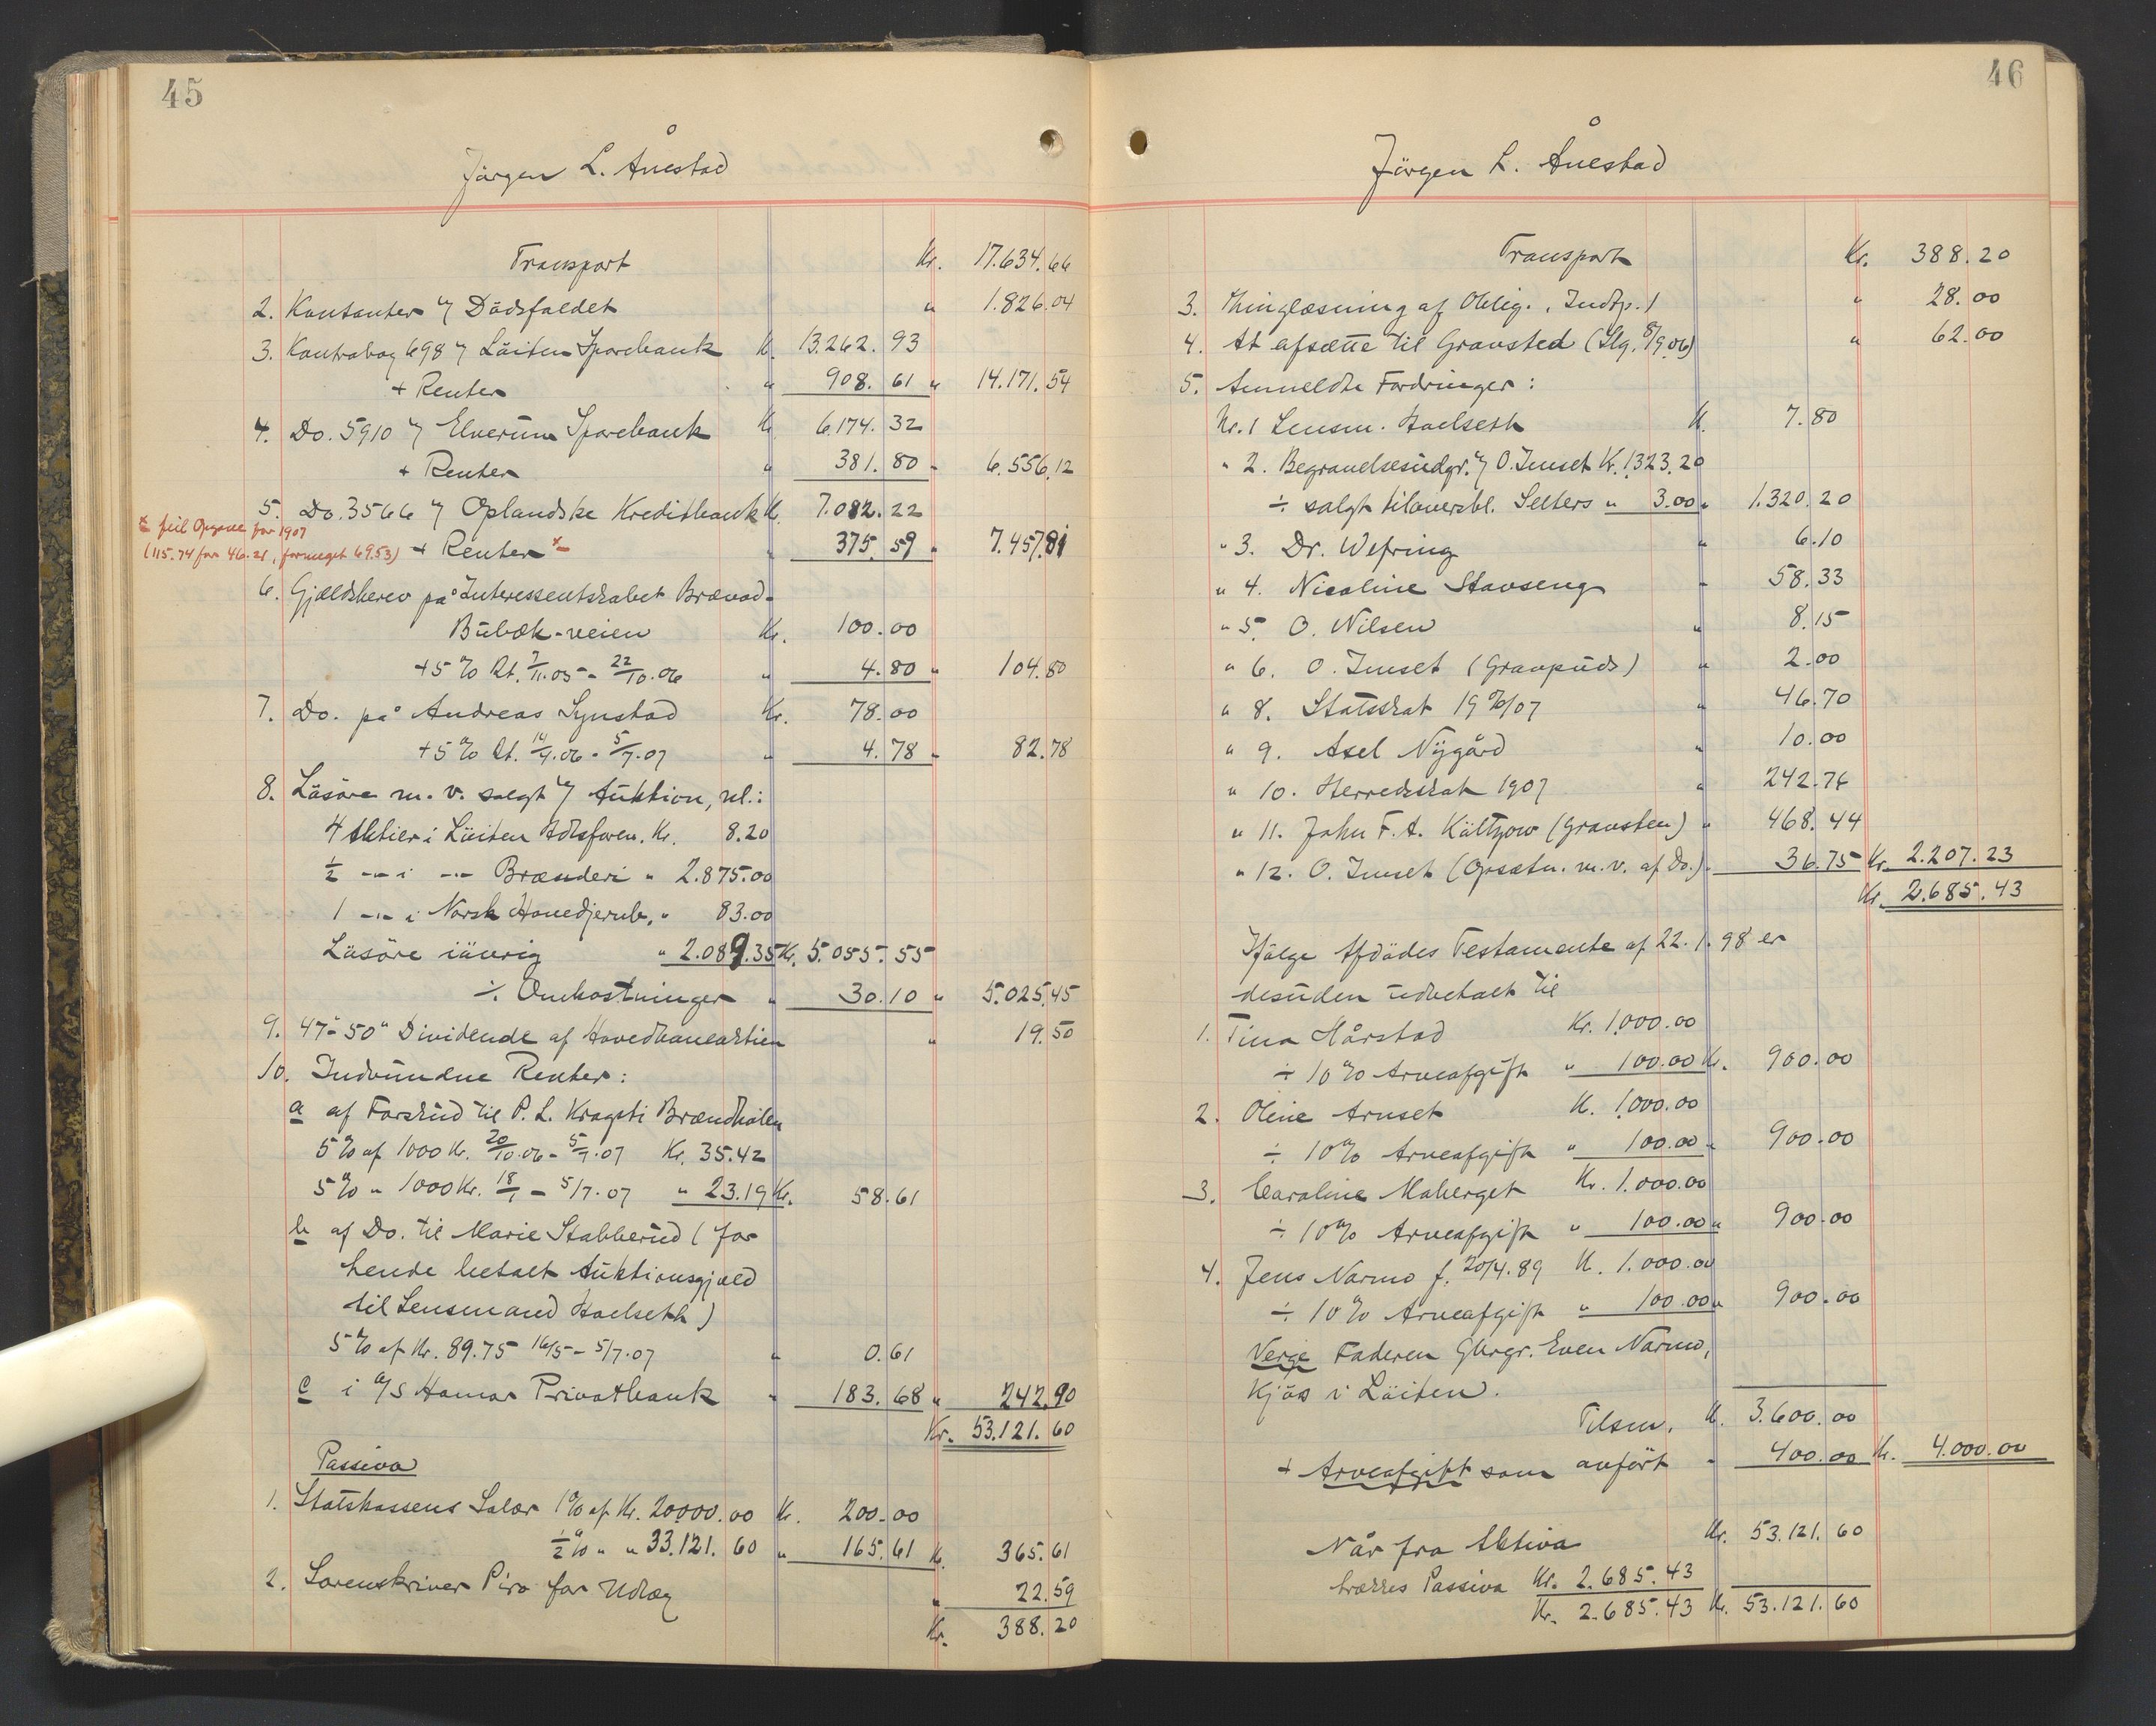 45
Jørgen L. Ånestad
Transport Kr. 17.634.66
2. Kontanter v/ Dødsfaldet " 1.826.04
3. Kontrabog 698 v/ Löiten Sparebank K. 13.262.93
+ Renter " 908.61 " 14.171.54
4. Do. 5910 v/ Elverum Sparebank Kr. 6.174.32
+ Renter " 381.80 " 6.556.12
5. Do. 3566 v/ Oplandske Kreditbank K. 7.082.22
x feil Opgave for 1907
(115.74 for 46.21, formeget 69.53) + Renter x " 375.59 " 7.457.81
6. Gjældsbrev på Interessentskabet Brænd-
Bubæk-veien Kr. 100.00
+ 5 % Rt. 7/11.05 - 22/10.06 " 4.80 " 104.80
7. Do. på Andreas Lynstad Kr. 78.00
+ 5 % Rt. 14/4.06 - 5/7.07 " 4.78 " 82.78
8. Lösöre m. v. solgt v/ Auktion, nl.:
4 Aktier i Löiten Kr. 8.20
1/2 -"- i -"- Brænderi " 2.875.00
1 -"- i Norsk Hovedjernb. " 83.00
Lösöre iövrig " 2.089.35 Kr. 5.055.55
÷ Omkostninger " 30.10 " 5.025.45
9. 47"-50" Dividende af Hovedbaneaktien " 19.50
10. Indvundne Renter:
a af Forskud til P. L. Kragsti Brændholen
5 % af 1000 Kr. 20/10.06 - 5/7.07 Kr. 35.42
5 % " 1000 Kr. 18/1 - 5/7.07 " 23.19 Kr. 58.61
b af Do. til Marie Stabberud (for
hende betalt Auktionsgjæld
til Lensmand Hoelseth)
5 % af Kr. 89.75 16/5 - 5/7.07 " 0.61
c i A/S Hamar Privatbank " 183.68 " 242.90
Kr. 53.121.60
Passiva
1. Statskassens Salær 1 % af Kr. 20.000.00 Kr. 200.00
1/2 % " " 33.121.60 " 165.61 K. 365.61
2. Sorenskriver Piro for Udlæg " 22.59
Kr. 388.20
46
Jørgen L. Ånestad
Transport Kr. 388.20
3. Thinglæsning af Oblig. " 28.00
4. At afsætte til Gravsted (Slg. 8/9.06) " 62.00
5. Anmeldte Fordringer:
Nr. 1 Lensm. Hoelseth K. 7.80
" 2. Begravelsesudgr. v/ O. Imset Kr. 1323.20
÷ solgt tiloversbl. Selters " 3.00 " 1.320.20
" 3. Dr. Wefring " 6.10
" 4. Nicoline Stavseng " 58.33
" 5. O. Nilsen " 8.15
" 6. O. Imset (Gravpuds) " 2.00
" 8. Statsskat 1906/07 " 46.70
" 9. Axel Nygård " 10.00
" 10. Herredsskat 1907 " 242.76
" 11. John F. A. Kältzow (Gravsten) " 468.44
" 12. O. Imset (Opsætn. m. v. af Do.) " 36.75 Kr. 2.207.23
Kr. 2.685.43
Ifølge Afdødes Testamente af 22.1.98 er
desuden udbetalt til
1. Tina Hårstad Kr. 1.000.00
÷ 10 % Arveafgift " 100.00 K. 900.00
2. Oline Arnset K. 1.000.00
÷ 10 % Arveafgift " 100.00 " 900.00
3. Caroline Moberget Kr. 1.000.00
÷ 10 % Arveafgift " 100.00 " 900.00
4. Jens Narmo f. 20/4.89 K. 1.000.00
÷ 10 % Arveafgift " 100.00 " 900.00
Verge Faderen Gbrgr. Even Narmo,
Kjös i Löiten.
Tilsm. K. 3.600.00
+ Arveafgift som anført " 400.00 Kr. 4.000.00
Når fra Aktiva Kr. 53.121.60
trækkes Passiva Kr. 2.685.43
Kr. 2.685.43 Kr. 53.121.60